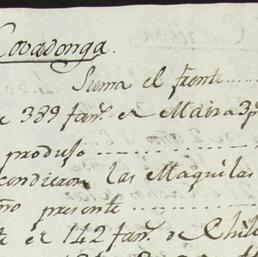 Covadonga.
Suma el frente......
e 389 fan.s de Maiz a 3p
produso ..........
condieron las Maquilas
ño presente ..........
te er 142 fan.s de Chil